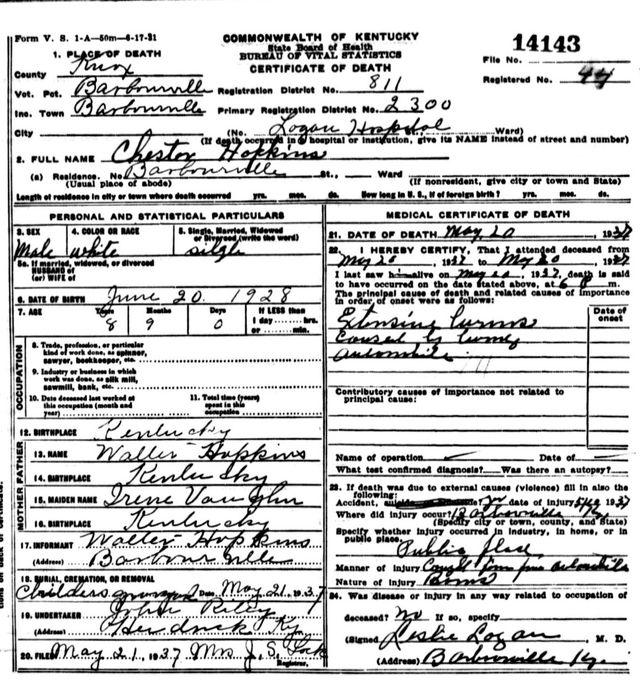 Form V. S. 1-A—50m—6-17-31
COMMONWEALTH OF KENTUCKY
State Board of Health
BUREAU OF VITAL STATISTICS
CERTIFICATE OF DEATH
14143
File No.
Registered No. 44
1. PLACE OF DEATH
County Knox
Vot. Pct. Barbourville Registration District No. 811
Inc. Town Barbourville Primary Registration District No. 2300
City (No. Logan Hospital Ward)
(If death occurred in a hospital or institution, give its NAME instead of street and number)
2. FULL NAME Chester Hopkins
(a) Residence. No. Barbourville St., Ward
(Usual place of abode) (If nonresident, give city or town and State)
Length of residence in city or town where death occurred yrs. mos. ds. How long in U. S., if of foreign birth? yrs. mos. ds.
PERSONAL AND STATISTICAL PARTICULARS
3. SEX 4. COLOR OR RACE 5. Single, Married, Widowed or Divorced (write the word)
Male white
5a. If married, widowed, or divorced
HUSBAND of
(or) WIFE of
6. DATE OF BIRTH June 20. 1928
7. AGE Years Months Days If LESS than
8 9 0 1 day.....hrs. or.....min.
OCCUPATION
8. Trade, profession, or particular kind of work done, as spinner, sawyer, bookkeeper, etc.
9. Industry or business in which work was done, as silk mill, sawmill, bank, etc.
10. Date deceased last worked at this occupation (month and year)
11. Total time (years) spent in this occupation
12. BIRTHPLACE Kentucky
FATHER
13. NAME Walter Hopkins
14. BIRTHPLACE Kentucky
MOTHER
15. MAIDEN NAME Irene Vaughn
16. BIRTHPLACE Kentucky
17. INFORMANT Walter Hopkins
(Address) Barbourville
18. BURIAL, CREMATION, OR REMOVAL
Childers Date May 21, 1937
19. UNDERTAKER John Riley
(Address) Ky.
20. FILED May 21, 1937 Mrs J. S.
Registrar.
MEDICAL CERTIFICATE OF DEATH
21. DATE OF DEATH May 20, 1937
22. I HEREBY CERTIFY, That I attended deceased from
May 20, 1937 to May 20, 1937
I last saw h alive on May 20, 1937, death is said
to have occurred on the date stated above, at 6 m.
The principal cause of death and related causes of importance in order, of onset were as follows:
Date of onset
Extensive burns
caused by
automobile
Contributory causes of importance not related to principal cause:
Name of operation
What test confirmed diagnosis? Was there an autopsy?
23. If death was due to external causes (violence) fill in also the following:
Accident, date of injury 5/20, 1937
Where did injury occur? Barbourville Ky.
(Specify city or town, county, and State)
Specify whether injury occurred in industry, in home, or in public place.
Public place
Manner of injury Caught from automobile
Nature of injury Burns
24. Was disease or injury in any way related to occupation of
deceased? No If so, specify
(Signed) Leslie Logan M. D.
(Address) Barbourville Ky.